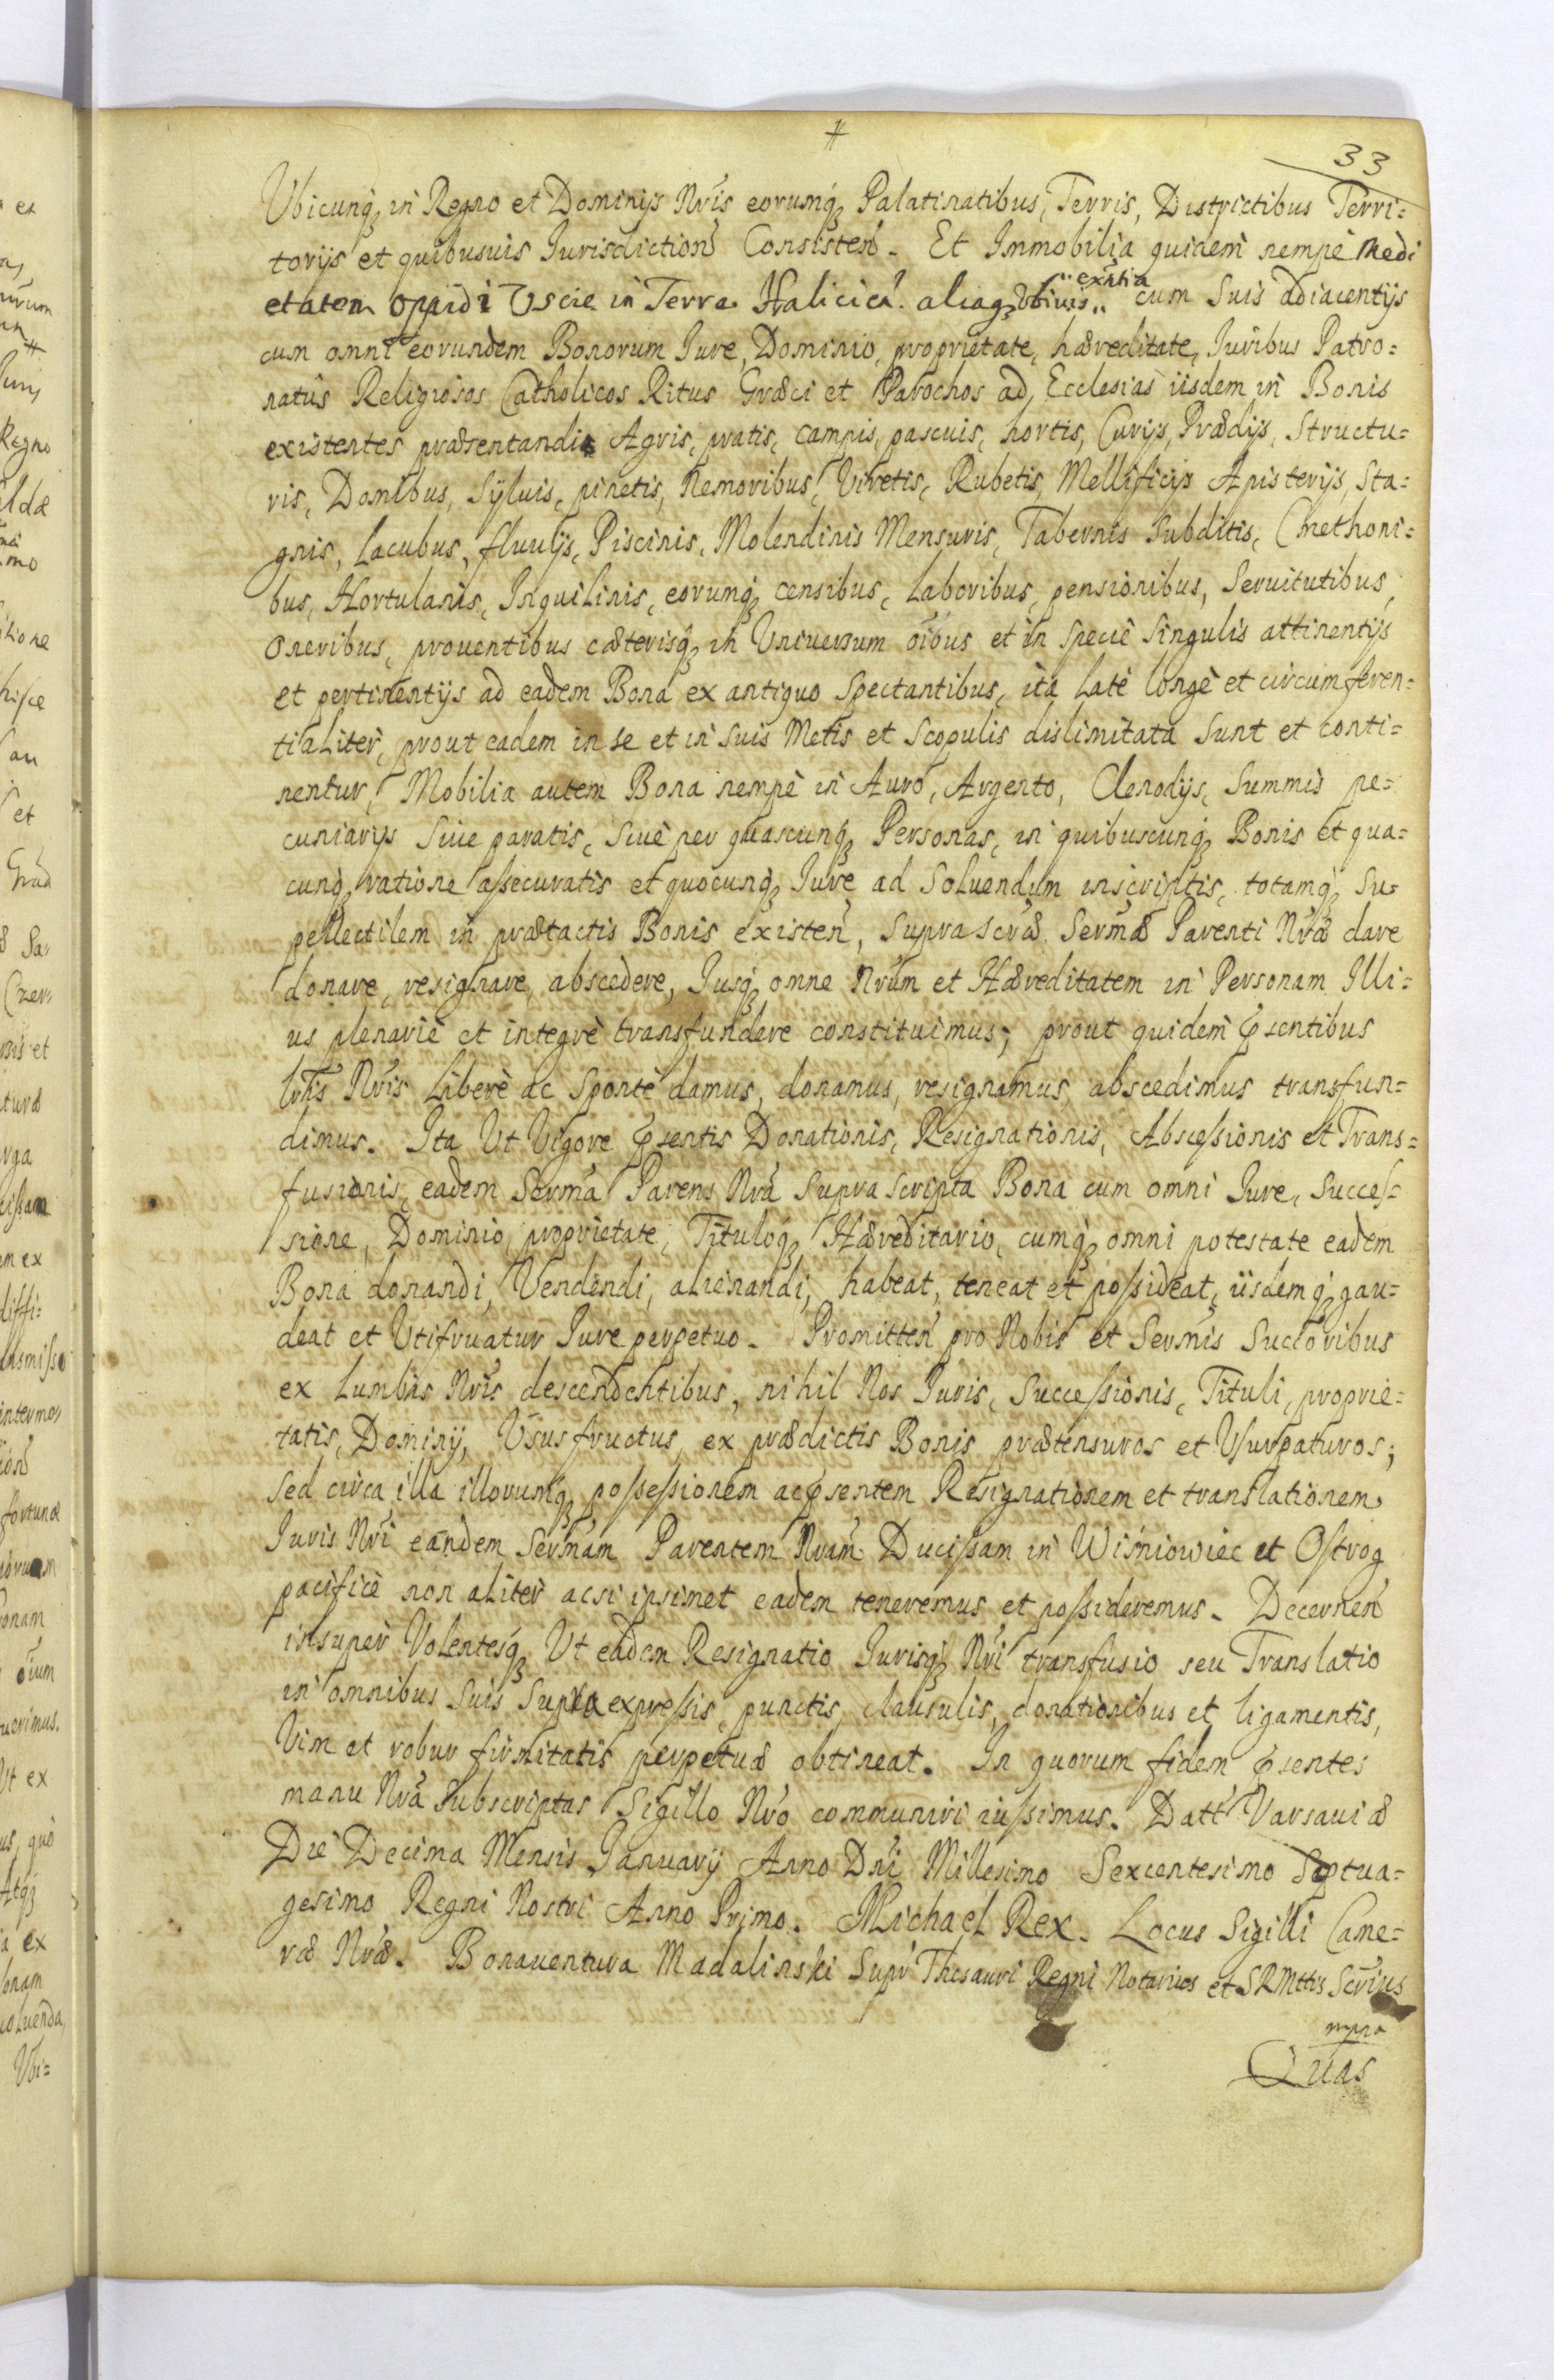 #
33
Ubicunq in Regno et Dominijs Nris eorumq Palatinatibus, Terris, Districtibus Terri=
torijs et quibusuis Jurisdiction Consisten. Et Immobilia quidem nempe Medi
etatem oppidi Uscie in Terra Halicien. aliaq Ubiuis exntia cum Suis adiacentijs
cum omni eorundem Bonorum Jure, Dominio, proprietate, hæreditate, Juribus Patro=
natûs Religiosos Catholicos Ritus Græci et Parochos ad Ecclesias iisdem in Bonis
existentes præsentandi Agris, pratis, campis, pascuis, hortis, Curijs, Prædijs, Structu=
ris, Domibus, Syluis, pinetis, Nemoribus, Viretis, Rubetis, Mellificijs Apisterijs, Sta=
gnis, Lacubus, fluuijs, Piscinis, Molendinis Mensuris, Tabernis Subditis, Cmethoni=
bus, Hortulanis, Inquilinis, eorumq censibus, Laboribus, pensionibus, Seruitutibus,
Oneribus, prouentibus cæterisq in Uniuersum oibus et in specie singulis attinentijs
et pertinentijs ad eadem Bona ex antiquo Spectantibus, ita Latè longè et circumferen=
tialiter, prout eadem in se et in suis Metis et Scopulis dislimitata sunt et conti=
nentur, Mobilia autem Bona nempè in Auro, Argento, Clenodijs, Summis pe=
cuniarijs Siue paratis, Siuè per quascunq Personas, in quibuscunq Bonis et qua=
cunq ratione assecuratis et quocunq Jure ad Soluendum inscriptis, totamq Su=
pellectilem in prætactis Bonis existen, Suprascræ Sermæ Parenti Nræ dare
donare, resignare, abscedere, Jusq omne Nrum et Hæreditatem in Personam Illi=
us plenariè et integrè transfundere constituimus; prout quidem psentibus
lris Nris Liberè ac Spontè damus, donamus, resignamus, abscedimus transfun=
dimus. Ita Ut Vigore psentis Donationis, Resignationis, Abscessionis et Trans=
fusionis, eadem Serma Parens Nra Supra Scripta Bona cum omni Jure, Succes=
sione, Dominio, proprietate, Tituloq Hæreditario, cumq omni potestate eadem
Bona donandi, Vendendi, alienandi, habeat, teneat et possideat, iisdemq gau=
deat et Utifruatur Jure perpetuo. Promitten pro Nobis et Sermis Succoribus
ex Lumbis Nris descendentibus, nihil Nos Juris, Successionis, Tituli, proprie=
tatis, Dominij, Ususfructus ex prædictis Bonis prætensuros et Usurpaturos;
Sed circa illa illorumq possessionem ac psentem Resignationem et translationem
Juris Nri eandem Sermam Parentem Nram Ducissam in Wiśniowiec et Ostrog
pacificè non aliter acsi ipsimet eadem teneremus et possideremus. Decernen
insuper Volentesq Ut eadem Resignatio Jurisq Nri transfusio seu Translatio
in omnibus Suis Supra expressis, punctis, clausulis, donationibus et ligamentis,
Vim et robur firmitatis perpetuæ obtineat. In quorum fidem psentes
manu Nra Subscriptas Sigillo Nro communiri iussimus. Datt Varsauiæ
Die Decima Mensis Januarij Anno Dni Millesimo Sexcentesimo Septua=
gesimo Regni Nostri Anno Primo. Michael Rex. Locus Sigilli Came=
ræ Nræ. Bonauentura Madalinski Supr Thesauri Regni Notarius et SRMttis Scrius
mpra
Quas